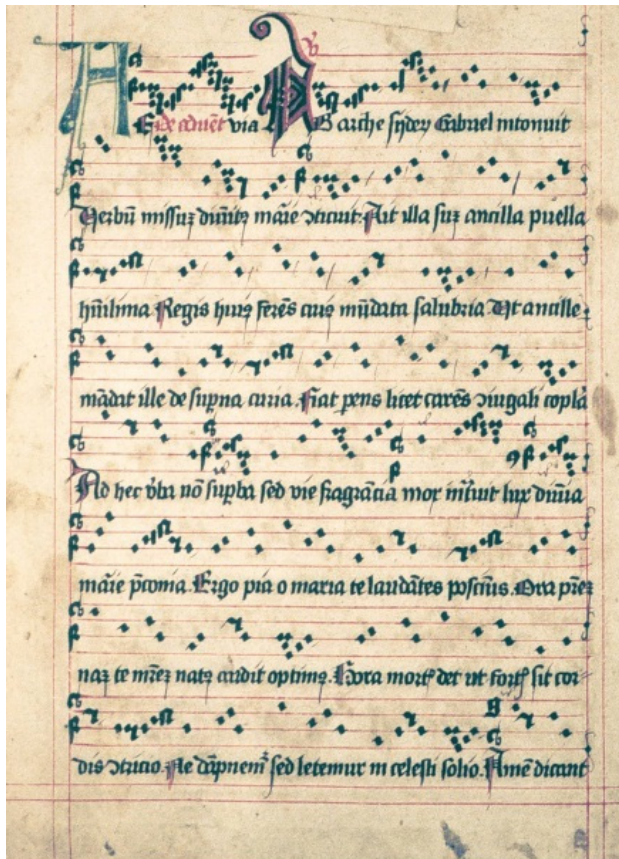 AE de aduēt via AB arche syderꝫ Gabriel intonuit
Verbū missuꝫ diuinitꝰ maīe ꝯticuit. Ait illa suꝫ ancilla puella
hūilima Regis huiꝰ ferēs cuiꝰ mūdata salubria Vt ancille
mādat ille de supͥna curia. Fiat p̄ens licet carēs ꝯiugali copla
Ad hec v̓ba nō supͥba sed vie fragrācia mox intͥuit lux diuīa
maīe p̄conia Ergo pia o maria te laudātes poscimꝰ. Ora pr̄eꝫ
naꝫ te mr̄eꝫ natꝰ audit optimꝰ. Hora mortꝭ det ut fortꝭ sit cor-
dis ꝯtricio. Ne dāpnemͥ sed letemur in celesti solio. Amē dicant